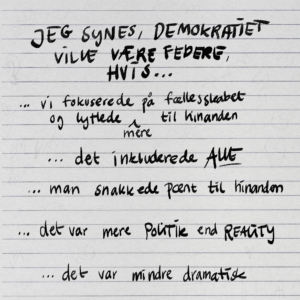 JEG SYNES, DEMOKRATIET
VILLE VÆRE FEDERE,
HVIS...
... vi fokuserede på fællesskabet
og lyttede til hinanden
mere
... det inkluderede ALLE
... man snakkede pænt til hinanden
... det var mere POLITIK end REALITY
... det var mindre dramatisk